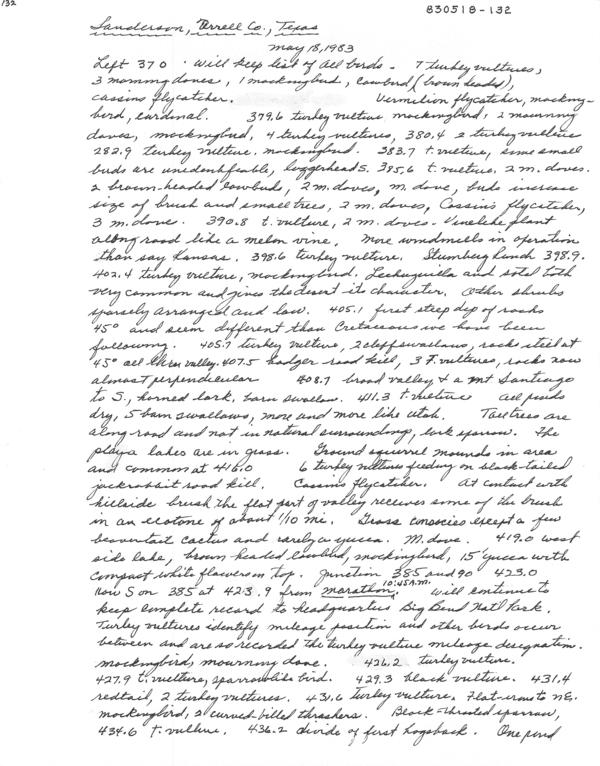 132
830518-132
Sanderson, Terrell Co., Texas
May 18, 1983
Left 370. Will keep list of all birds - 7 turkey vultures,
3 morning doves, 1 mockingbird, cowbird (brown headed),
cassins flycatcher. Vermilion flycatcher, mocking-
bird, cardinal. 379.6 turkey vulture mockingbird, 2 mourning
doves, mockingbird, 4 turkey vultures, 380.4 2 turkey vulture
282.9 turkey vulture, mockingbird. 383.7 t. vulture, some small
birds are unidentifiable, loggerheads. 385.6 t. vulture, 2 m. doves.
2 brown-headed cowbirds, 2 m. doves, m. dove, birds increase
size of brush and small trees, 2 m. doves, Cassin's flycatcher,
3 m. dove. 390.8 t. vulture, 2 m. doves - Vinelike plant
along road like a melon vine. More windmills in operation
than say Kansas. 398.6 turkey vulture. Stumberg Ranch 398.9.
402.4 turkey vulture, mockingbird. Lechuguilla and sotol both
very common and gives the desert its character. Other shrubs
sparsely arranged and low. 405.1 first steep dip of rocks
45° and seem different than Cretaceous we have been
following. 405.7 turkey vulture, 2 cliff swallows, rocks still at
45° all thru valley. 407.5 badger road kill, 3 T. vultures, rocks now
almost perpendicular 408.7 broad valley & a Mt Santiago
to S., horned lark, barn swallow. 411.3 t. vulture all ponds
dry, 5 barn swallows, more and more like Utah. Tall trees are
along road and not in natural surroundings, lark sparrow. The
playa lakes are in grass. Ground squirrel mounds in area
and common at 416.0 6 turkey vultures feeding on black-tailed
jackrabbit road kill. Cassins flycatcher. At contact with
hillside brush the flat part of valley receives some of the brush
in an ecotone of about 1/10 mi. Grass canopies except a few
beavertail cactus and rarely a yucca. M. dove. 419.0 west
side lake, brown headed cowbird, mockingbird, 15' yucca with
compact white flowers on top. Junction 385 and 90 423.0
Now S on 385 at 423.9 from Marathon, 10:45 A.M. Will continue to
keep complete record to headquarters Big Bend Natl Park.
Turkey vultures identify mileage position and other birds occur
between and are so recorded the turkey vulture mileage designation.
mockingbird, mourning dove. 426.2 turkey vulture.
427.9 t. vulture, sparrowlike bird. 429.3 black vulture. 431.4
redtail, 2 turkey vultures. 431.6 Turkey vulture. Flat-irons to NE.
mockingbird, 2 curved-billed thrashers. Black-throated sparrow,
434.6 t. vulture. 436.2 divide of first hogsback. One pond